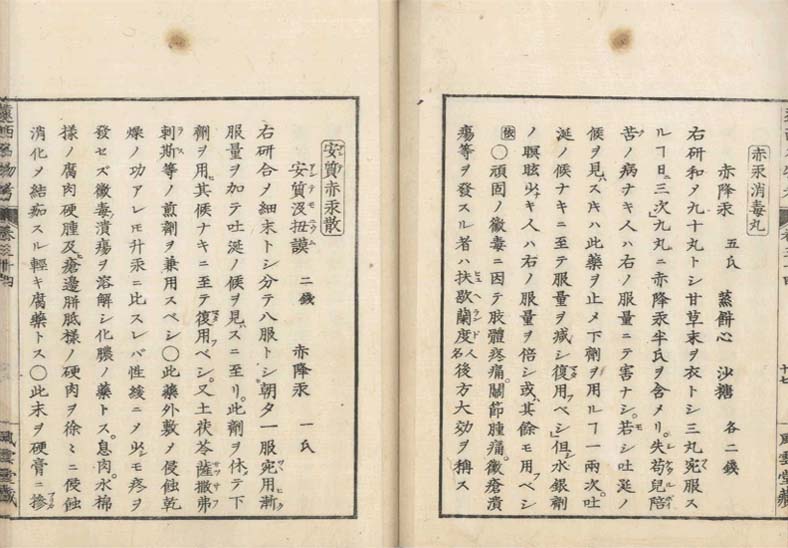 赤汞消毒丸
赤降汞 五氏 蒸餅心 沙糖 各二錢
右研和メ九十丸トシ甘草末ヲ衣トシ三丸宛服ス
ルヿ日三次九丸ニ赤降汞半氏ヲ含メリ。失苟兒陪
苦ノ病ナキ人ハ右ノ服量ニテ害ナシ。若シ吐涎ノ
候ヲ見スキハ此藥ヲ止メ下劑ヲ用ルヿ一兩次。吐
涎ノ候ナキニ至テ服量ヲ減シ復用ベシ但水銀劑
ノ瞑眩少キ人ハ右ノ服量ヲ倍シ或其餘モ用フベシ
〇頑固ノ黴毒ニ因テ肢體疼痛。關節腫痛。黴瘡潰
瘍等ヲ發スル者ハ扶歇蘭度人名後方大効ヲ稱ス
十七
風雲堂藏
安質赤汞散
安質没扭謨 二錢 赤降汞 一氏
右研合メ細末トシ分テ八服トシ朝夕一服宛用漸
服量ヲ加テ吐涎ノ候ヲ見スニ至リ。此劑ヲ休テ下
劑ヲ用其候ナキニ至テ復用ベシ。又土茯苓薩撒弗
剌斯等ノ煎劑ヲ兼用スベシ〇此藥外敷メ侵蝕乾
燥ノ功アレモ升汞ニ比スレバ性緩ニメ少モ疼ヲ
發セズ黴毒潰瘍ヲ溶解シ化膿ノ藥トス。息肉。水棉
樣ノ腐肉硬腫及瘡邊胼胝樣ノ硬肉ヲ徐々ニ侵蝕
消化メ結痂スル輕キ腐藥トス〇此末ヲ硬膏ニ摻
風雲堂藏